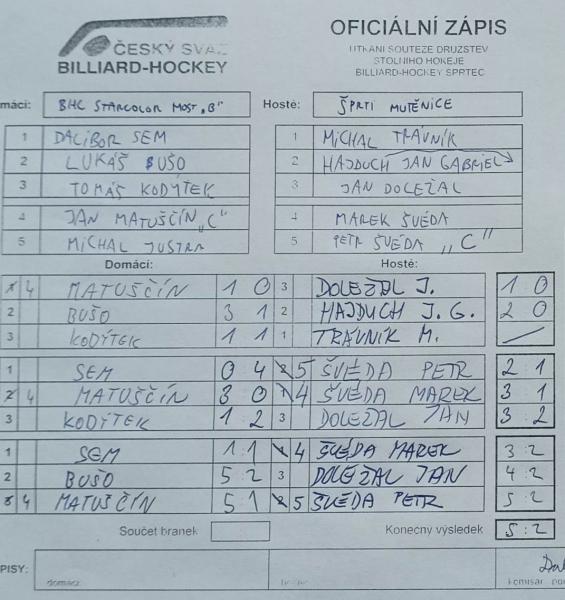 ČESKÝ SVAZ
BILLIARD-HOCKEY
OFICIÁLNÍ ZÁPIS
UTKÁNÍ SOUTĚŽE DRUŽSTEV
STOLNÍHO HOKEJE
BILLIARD-HOCKEY ŠPRTEC
mácí: BHC STARCOLOR MOST „B"
Hosté: ŠPRTI MUTĚNICE
1 DALIBOR SEM
1 MICHAL TRÁVNÍK
2 LUKÁŠ BUŠO
2 HAJDUCH JAN GABRIEL
3 TOMÁŠ KODÝTEK
3 JAN DOLEŽAL
4 JAN MATUŠČÍN „C"
4 MAREK ŠVÉDA
5 MICHAL JUSTRA
5 PETR ŠVÉDA „C"
Domácí: Hosté:
4 MATUŠČÍN 1 0 3 DOLEŽAL J. 1 0
2 BUŠO 3 1 2 HAJDUCH J. G. 2 0
3 KODÝTEK 1 1 1 TRÁVNÍK M. –
1 SEM 0 4 5 ŠVÉDA PETR 2 1
4 MATUŠČÍN 3 0 4 ŠVÉDA MAREK 3 1
3 KODÝTEK 1 2 3 DOLEŽAL JAN 3 2
1 SEM 1 1 4 ŠVÉDA MAREK 3:2
2 BUŠO 5 2 3 DOLEŽAL JAN 4 2
4 MATUŠČÍN 5 1 5 ŠVÉDA PETR 5 2
Součet branek Konečný výsledek 5:2
PISY:
domácí